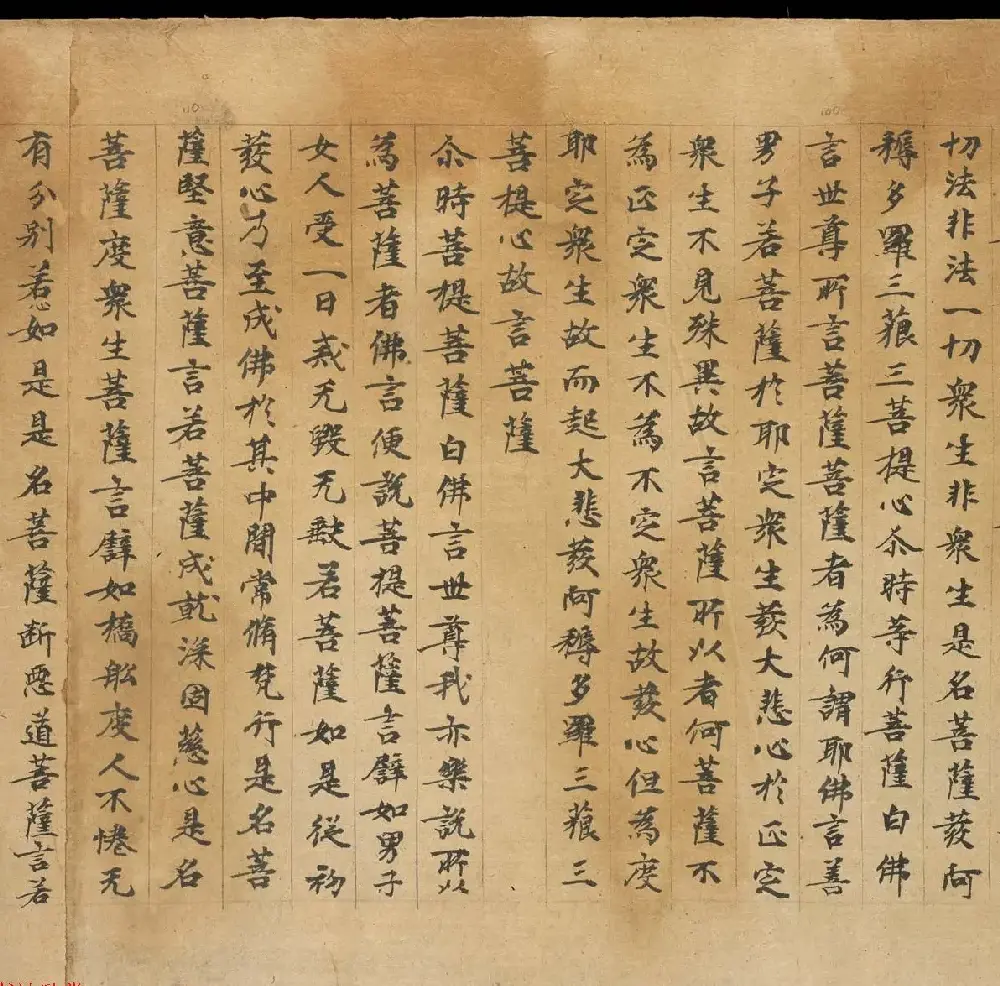 切法非法一切衆生非衆生是名菩薩發阿
耨多羅三藐三菩提心尒時等行菩薩白佛
言世尊所言菩薩菩薩者為何謂耶佛言善
男子若菩薩於耶定衆生發大悲心於正定
衆生不見殊異故言菩薩所以者何菩薩不
為正定衆生不為不定衆生故發心但為度
耶定衆生故而起大悲發阿耨多羅三藐三
菩提心故言菩薩
尒時菩提菩薩白佛言世尊我亦樂說所以
為菩薩者佛言便說菩提菩薩言譬如男子
女人受一日戒无毀无缺若菩薩如是從初
發心乃至成佛於其中間常脩梵行是名菩
薩堅意菩薩言若菩薩成就深固慈心是名
菩薩度衆生菩薩言譬如橋船度人不惓无
有分別若心如是是名菩薩斷惡道菩薩言若